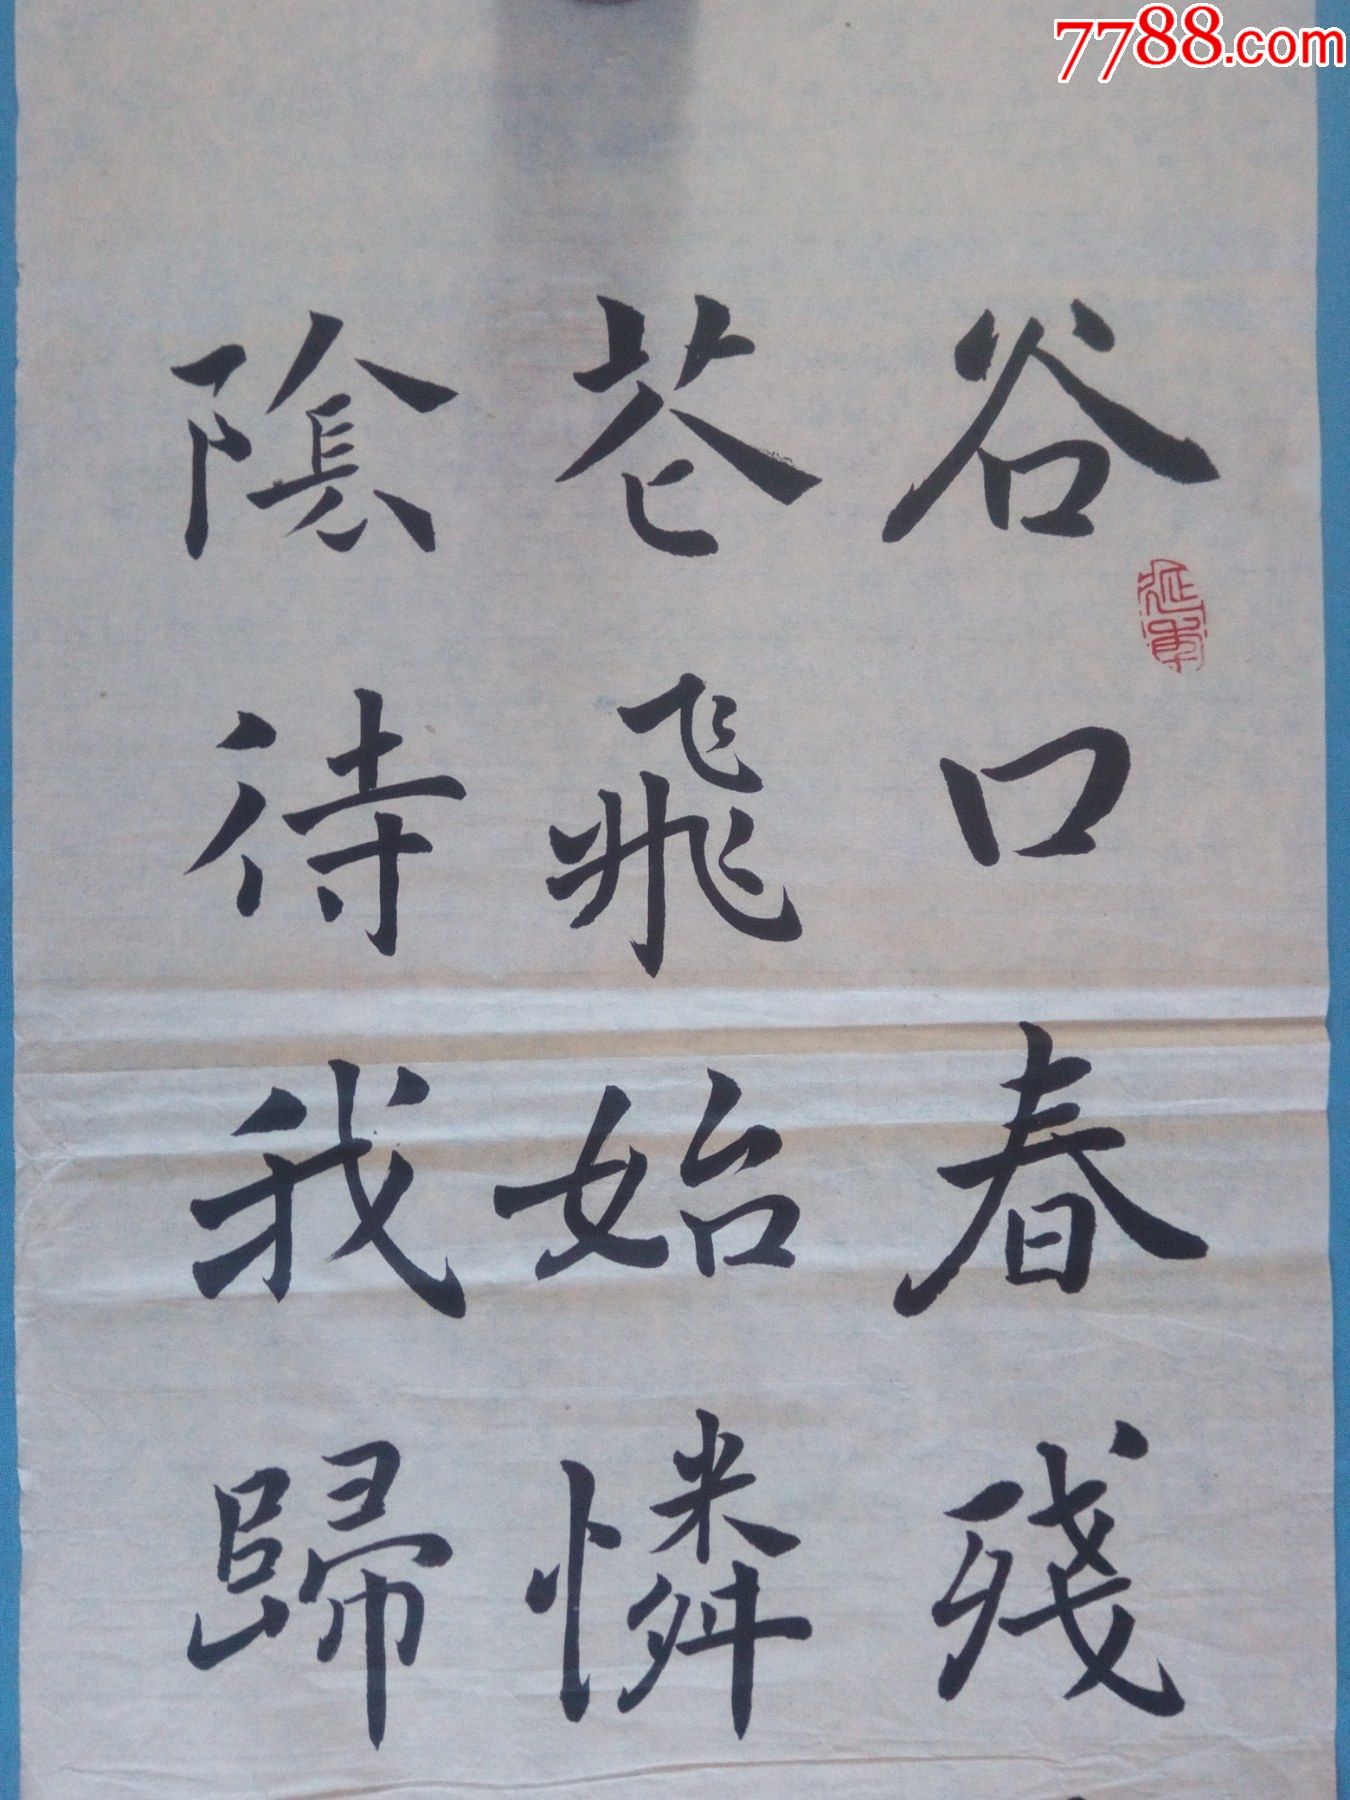 7788.com
谷口春殘
芲飛始憐
陰待我歸